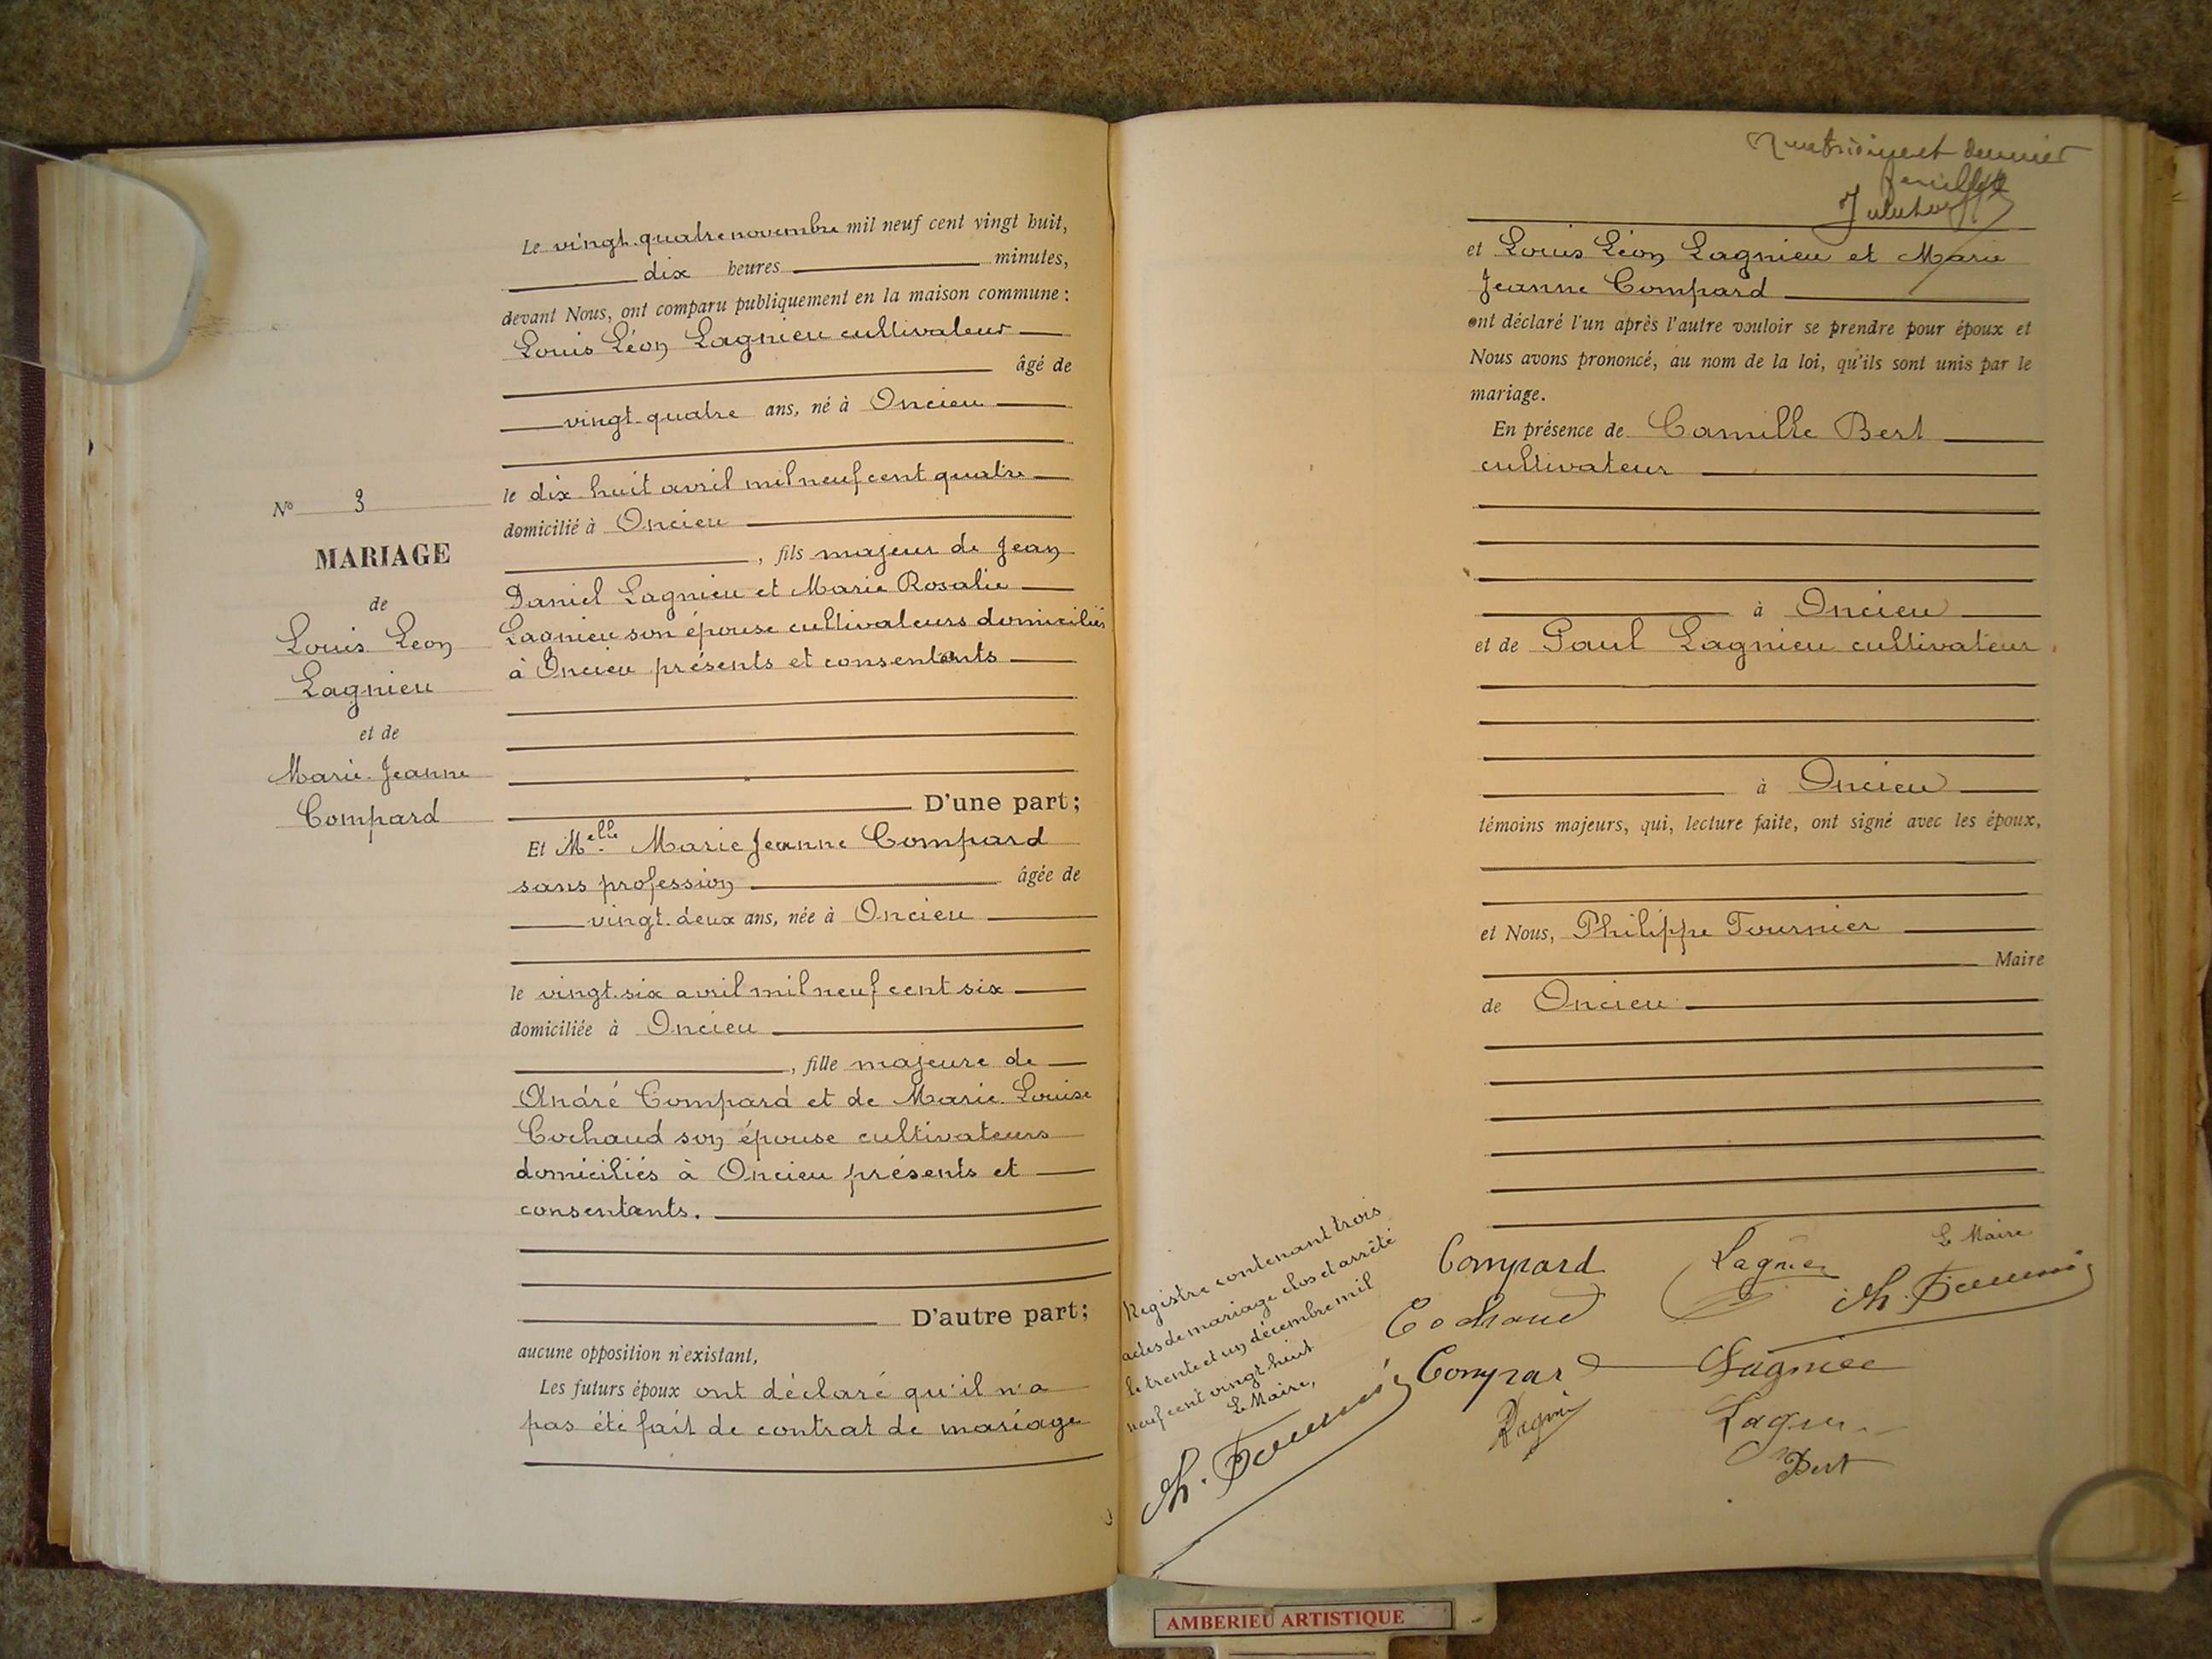 Le vingt-quatre novembre mil neuf cent vingt huit,
dix heures minutes,
devant Nous, ont comparu publiquement en la maison commune :
Louis Léon Lagnieu cultivateur
âgé de
vingt-quatre ans, né à Oncieu
le dix-huit avril mil neuf cent quatre
domicilié à Oncieu
, fils majeur de Jean
Daniel Lagnieu et Marie Rosalie
Lagnieu son épouse cultivateurs domiciliés
à Oncieu présents et consentants
D'une part;
Et Melle Marie Jeanne Compard
sans profession âgée de
vingt-deux ans, née à Oncieu
le vingt-six avril mil neuf cent six
domiciliée à Oncieu
, fille majeure de
André Compard et de Marie-Louise
Cochaud son épouse cultivateurs
domiciliés à Oncieu présents et
consentants.
D'autre part;
aucune opposition n'existant,
Les futurs époux ont déclaré qu'il n'a
pas été fait de contrat de mariage
No 3
MARIAGE
de
Louis Leon
Lagnieu
et de
Marie-Jeanne
Compard
et dernier
feuillet
et Louis Léon Lagnieu et Marie
Jeanne Compard
ont déclaré l'un après l'autre vouloir se prendre pour époux et
Nous avons prononcé, au nom de la loi, qu'ils sont unis par le
mariage.
En présence de Camille Bert
cultivateur
à Oncieu
et de Paul Lagnieu cultivateur
à Oncieu
témoins majeurs, qui, lecture faite, ont signé avec les époux,
et Nous, Philippe Fournier
Maire
de Oncieu
Registre contenant trois
actes de mariage clos et arrêté
le trente et un décembre mil
neuf cent vingt-huit
Le Maire,
Ph. Fournier
Compard Lagnieu Le Maire
Cochaud Ph. Fournier
Compard Lagnieu
Lagnieu
Bert
AMBERIEU ARTISTIQUE